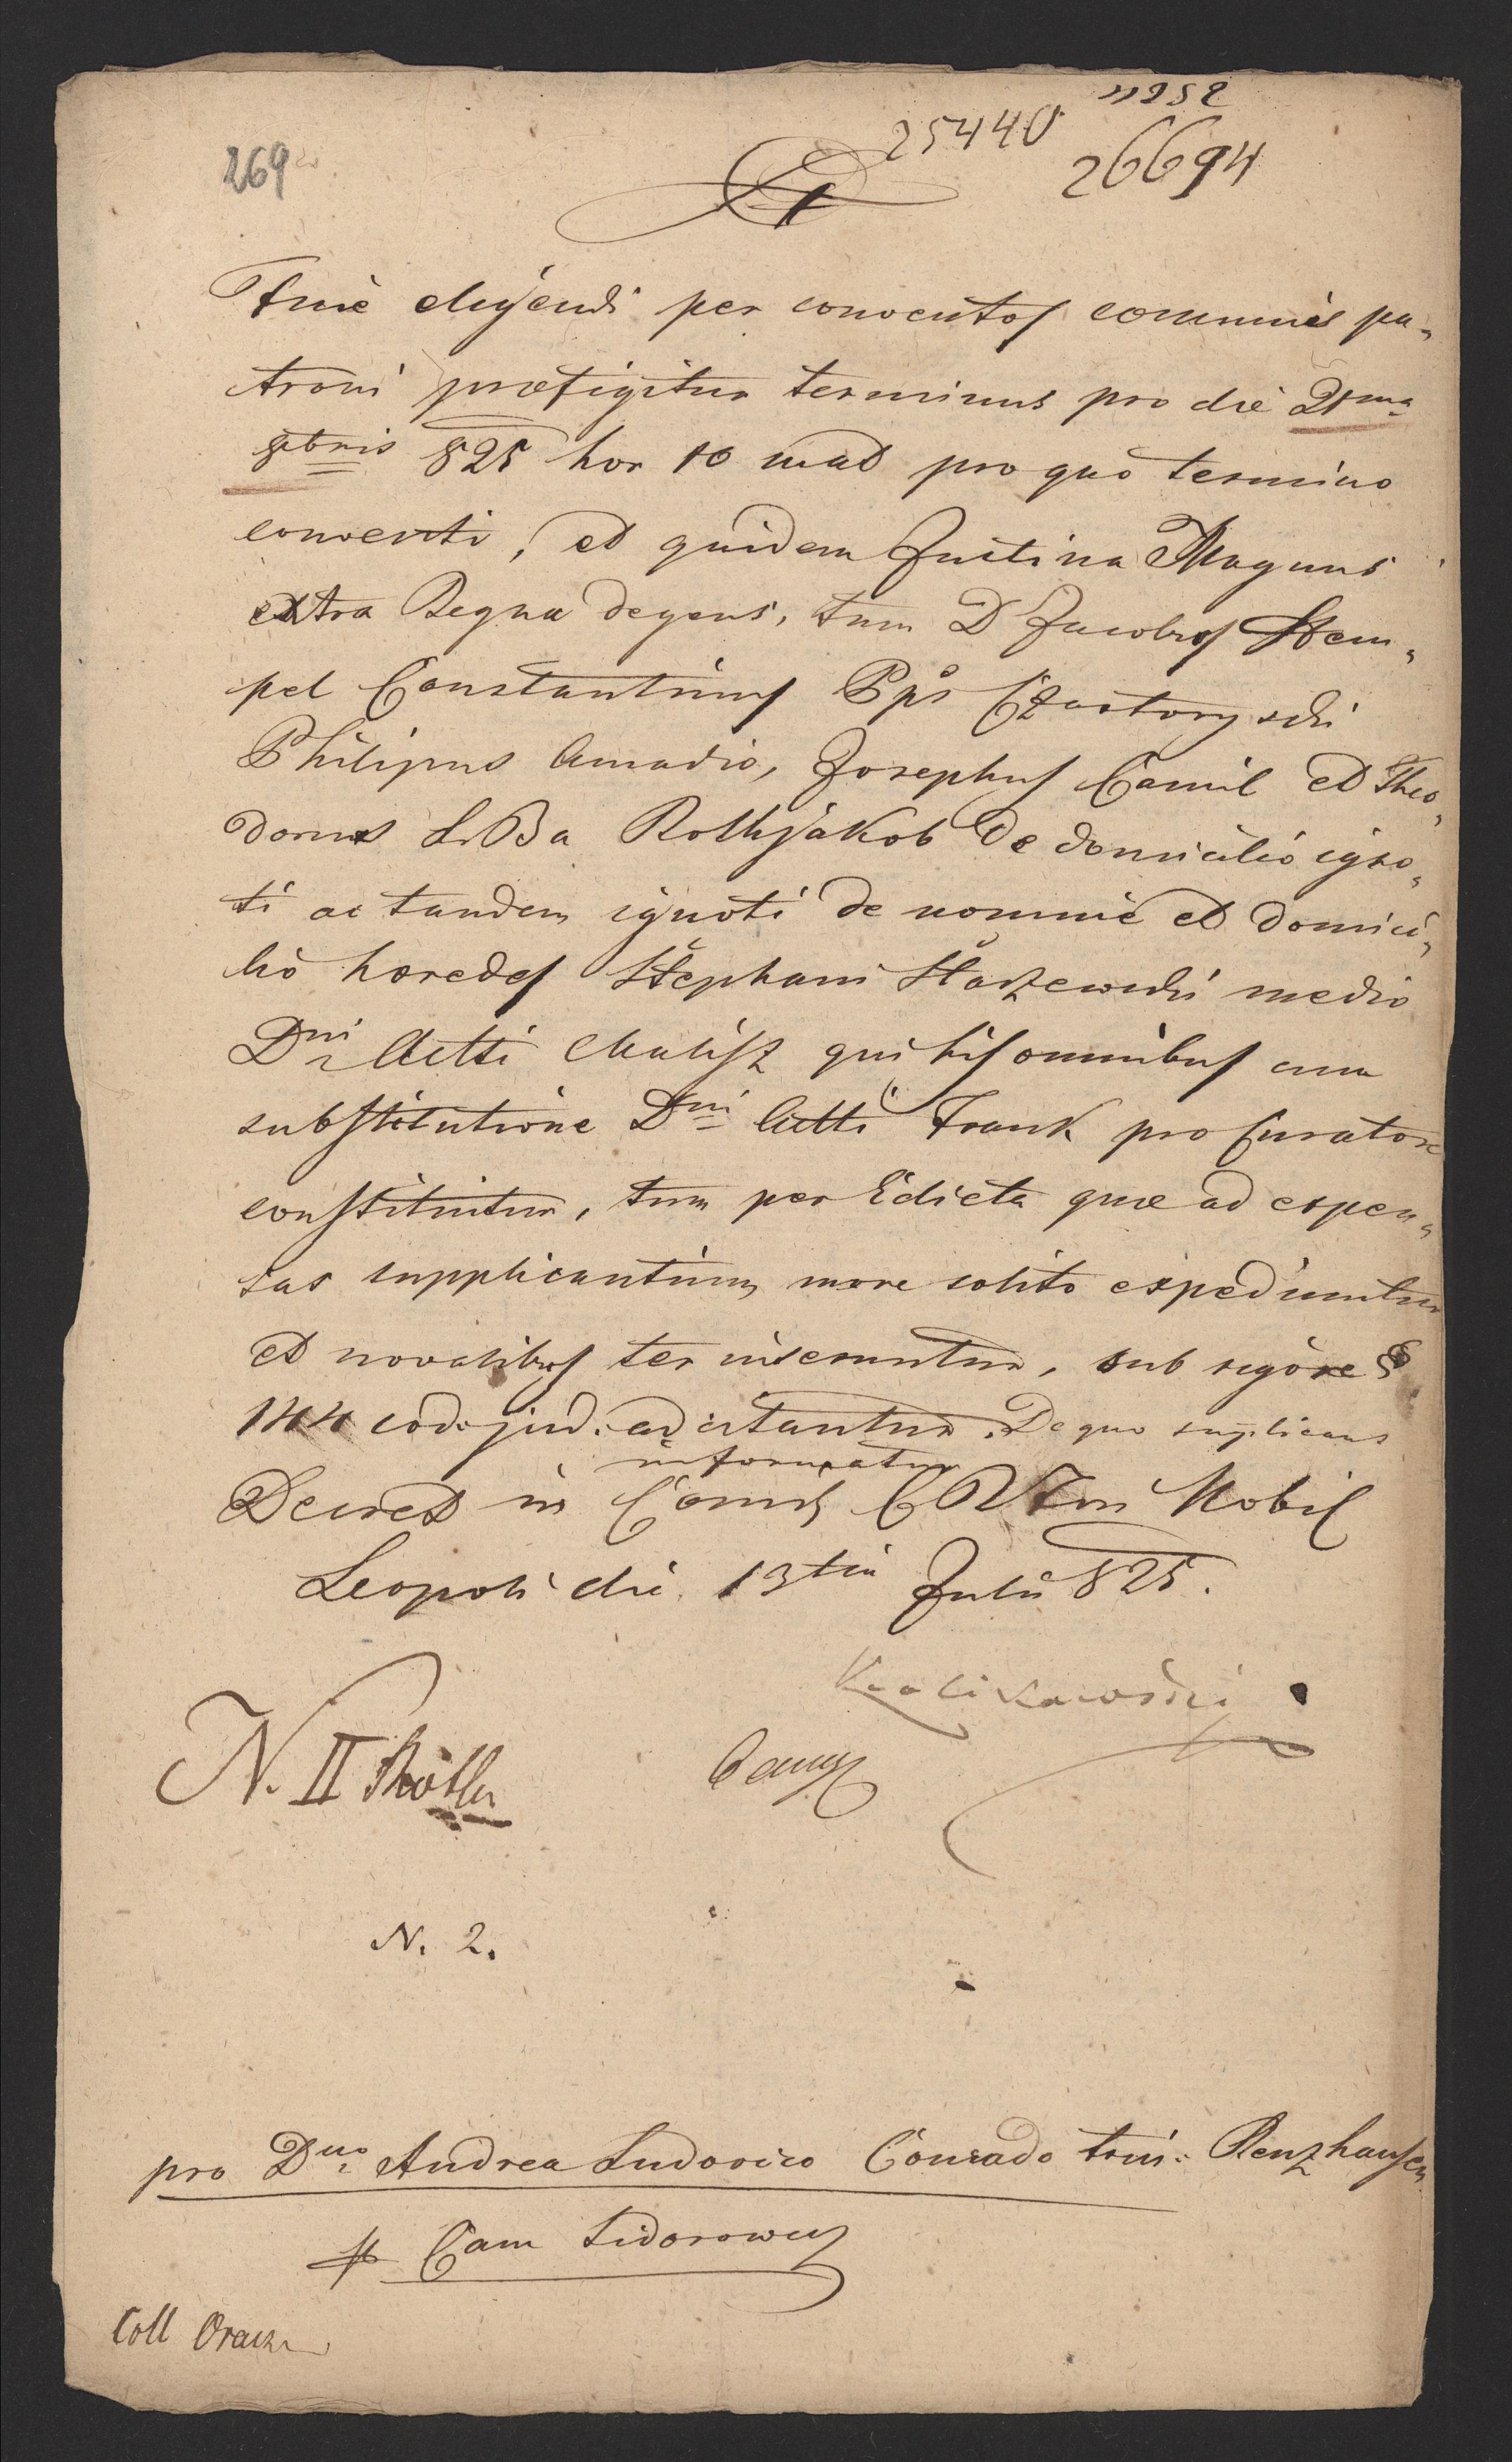 11252
25440
26694
269
Fine eligendi per conventos communis pa-
troni præfigitur terminus pro die 21ma
8bris 825 hor 10 mad pro quo termino
conventi, et quidem Justina Magnus
extra Regna degens, tum D Jacobus Stem-
pel Constantinus Pps Czartoryski
Philipus Amadio, Josephus Camil et Theo-
dorus L Ba Rothjakob de domicilio igno-
ti ac tandem ignoti de nomine et domici-
lio hæredes Stephani Starzewski medio
Dni Actti qui his omnibus cum
substitutione Dni Actti Frank pro Curatore
constituitur, tum per Edicta quæ ad expen-
sas supplicantium more solito expediuntur
et novalibus ter inseruntur, sub rigore §
144 cod. jud. adcitantur. De quo supplicans
informatur
Decret in Cons CR Fori Nobil
Leopoli die 13tia Julii 825.
N. II
N. 2.
pro Dno Andrea Ludovico Conrado trin: Renzhausen
Cam Sidorowicz
Coll